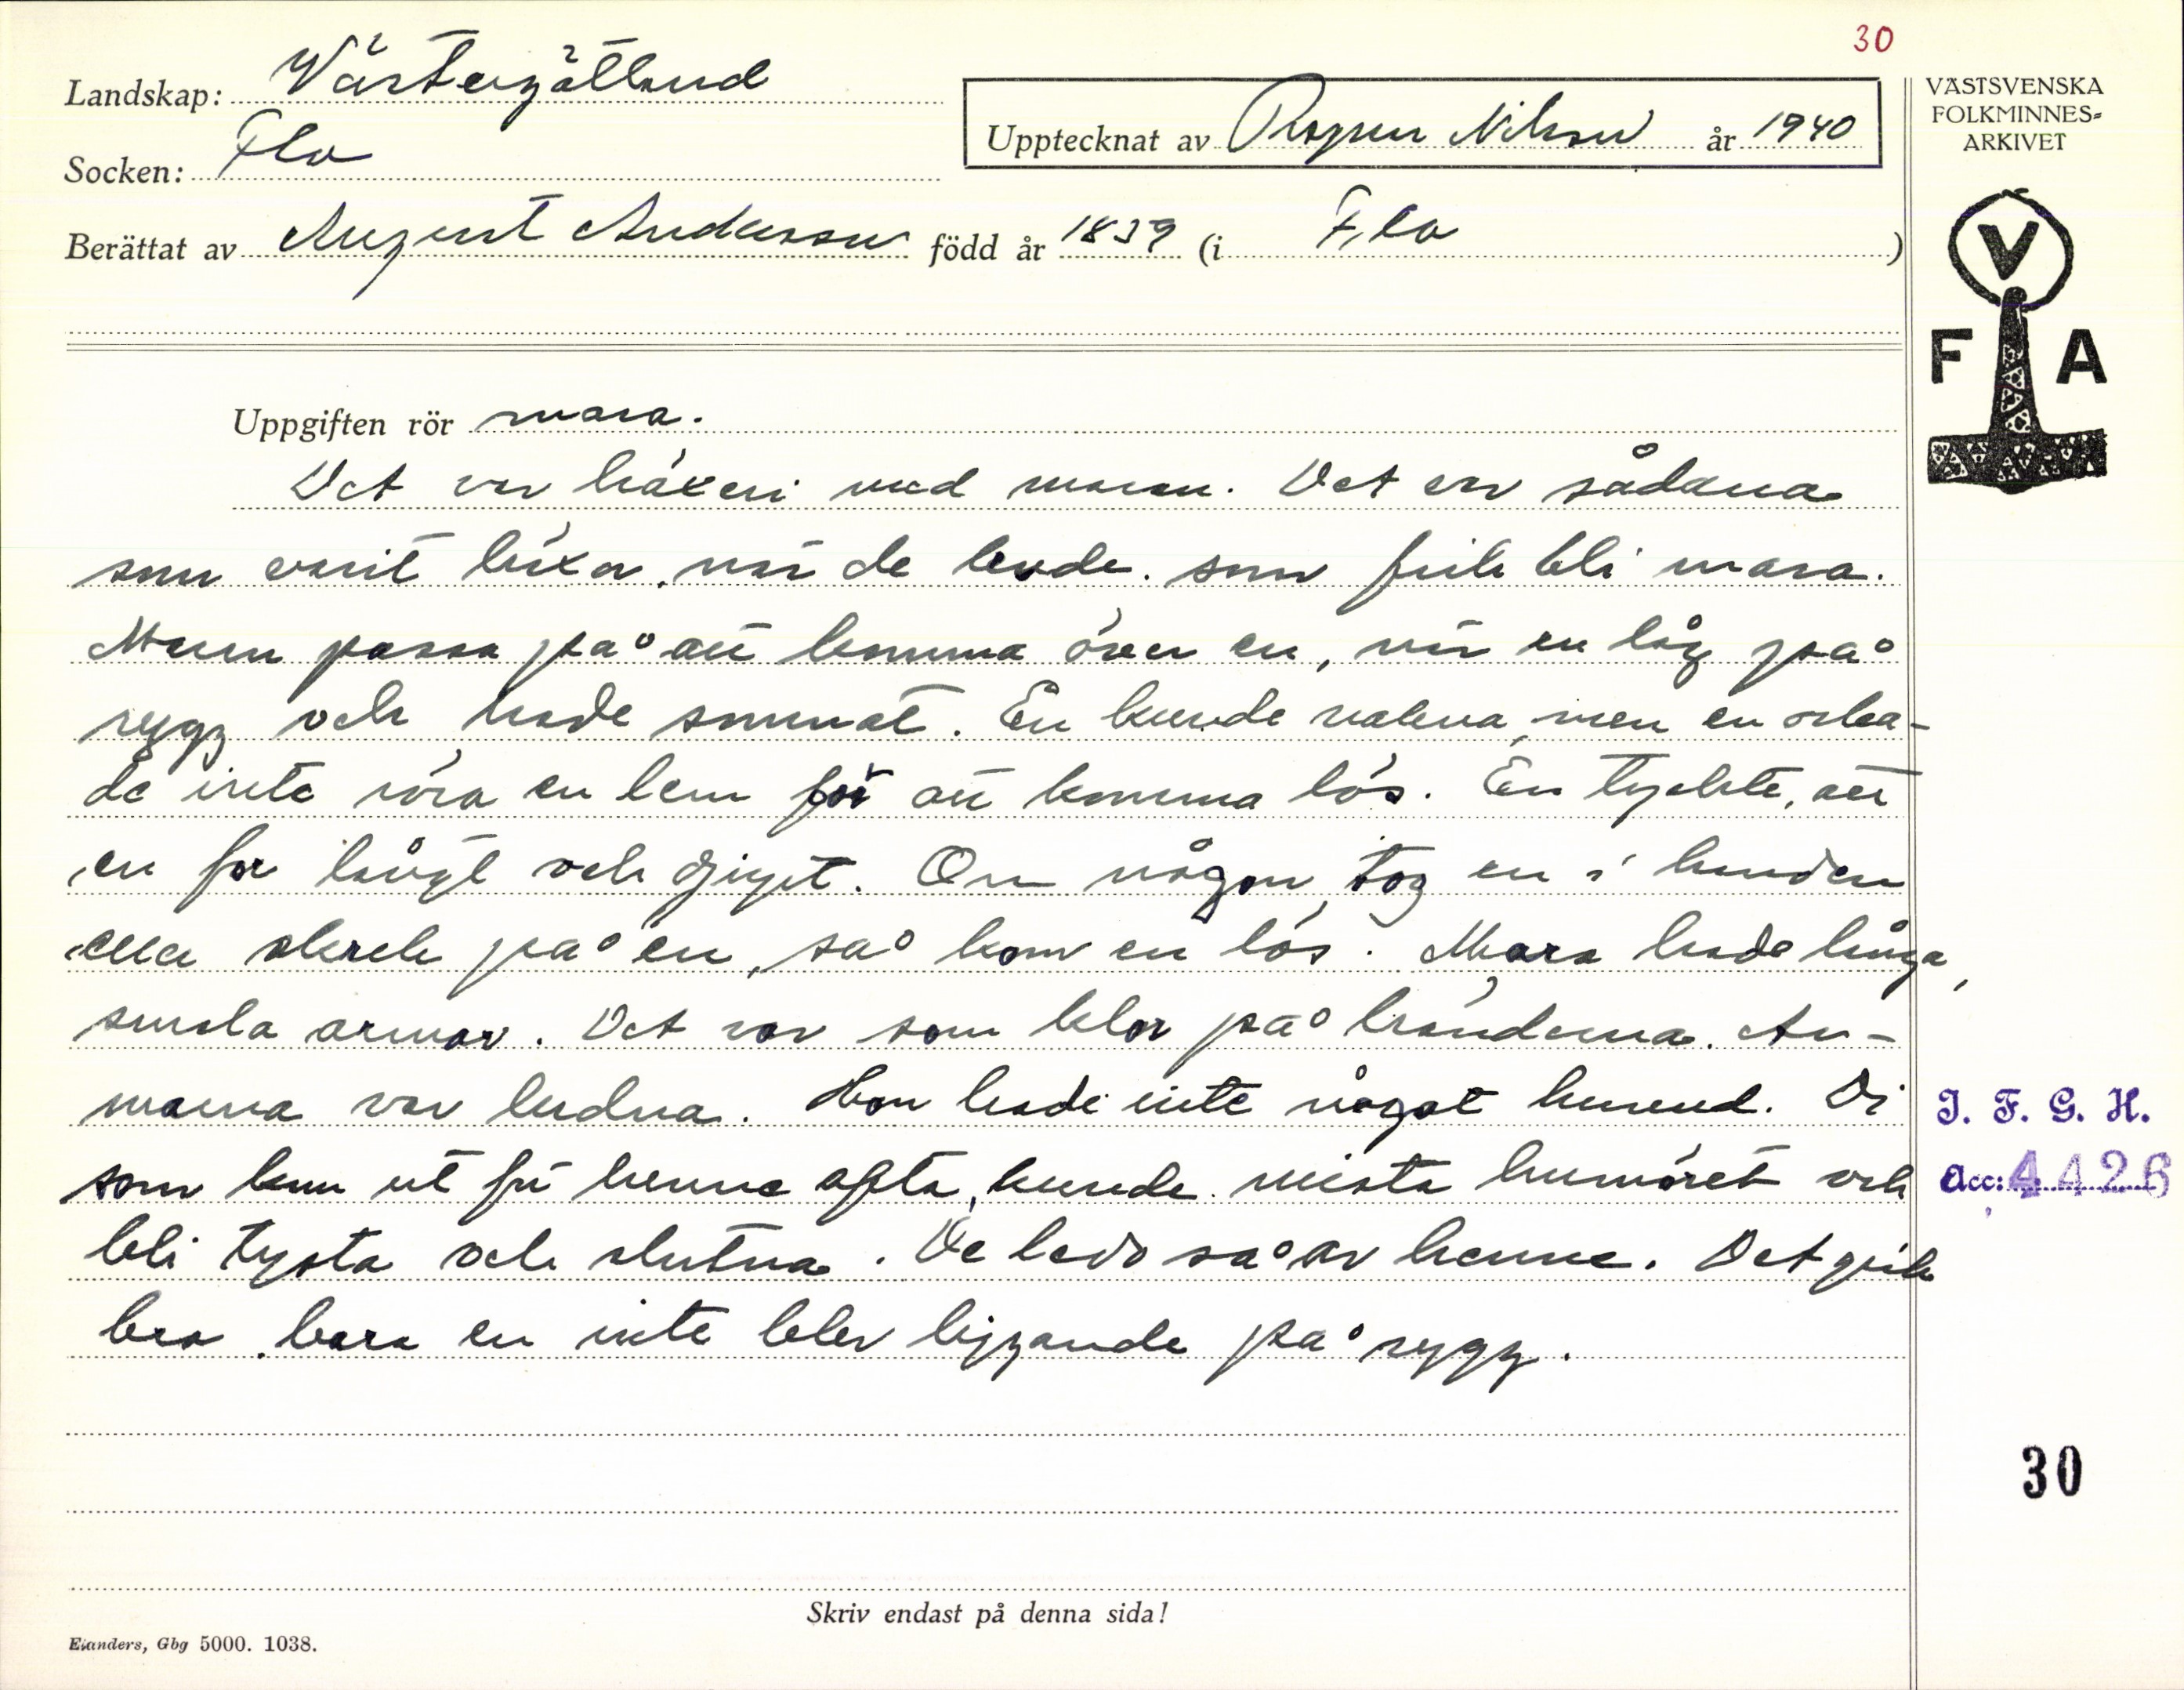 30
Landskap: Västergötland
Upptecknat av Ragnar Nilsson år 1940
Socken: Flo
Berättat av August Andersson född år 1839 (i Flo )
VÄSTSVENSKA
FOLKMINNES=
ARKIVET
V
F A
Uppgiften rör mara.
Det var häxeri med maran. Det var sådana
som varit häxor, när de levde, som fick bli mara.
Maran passa på att komma över en, när en låg på
rygg och hade somnat. En kunde vakna, men en orka-
de inte röra en lem för att komma lös. En tyckte, att
en for långt och djupt. Om någon tog en i handen
eller skrek på en, så kom en lös. Mara hade långa,
smala armar. Det var som klor på händerna. Ar-
marna var ludna. Hon hade inte något huvud. Di
som kom ut för henne ofta, kunde mista humöret och
bli tysta och slutna. De levo så av henne. Det gick
bra, bara en inte blev liggande på rygg.
I. F. G. H.
Acc: 4426
30
Skriv endast på denna sida!
Elanders, Gbg 5000. 1038.